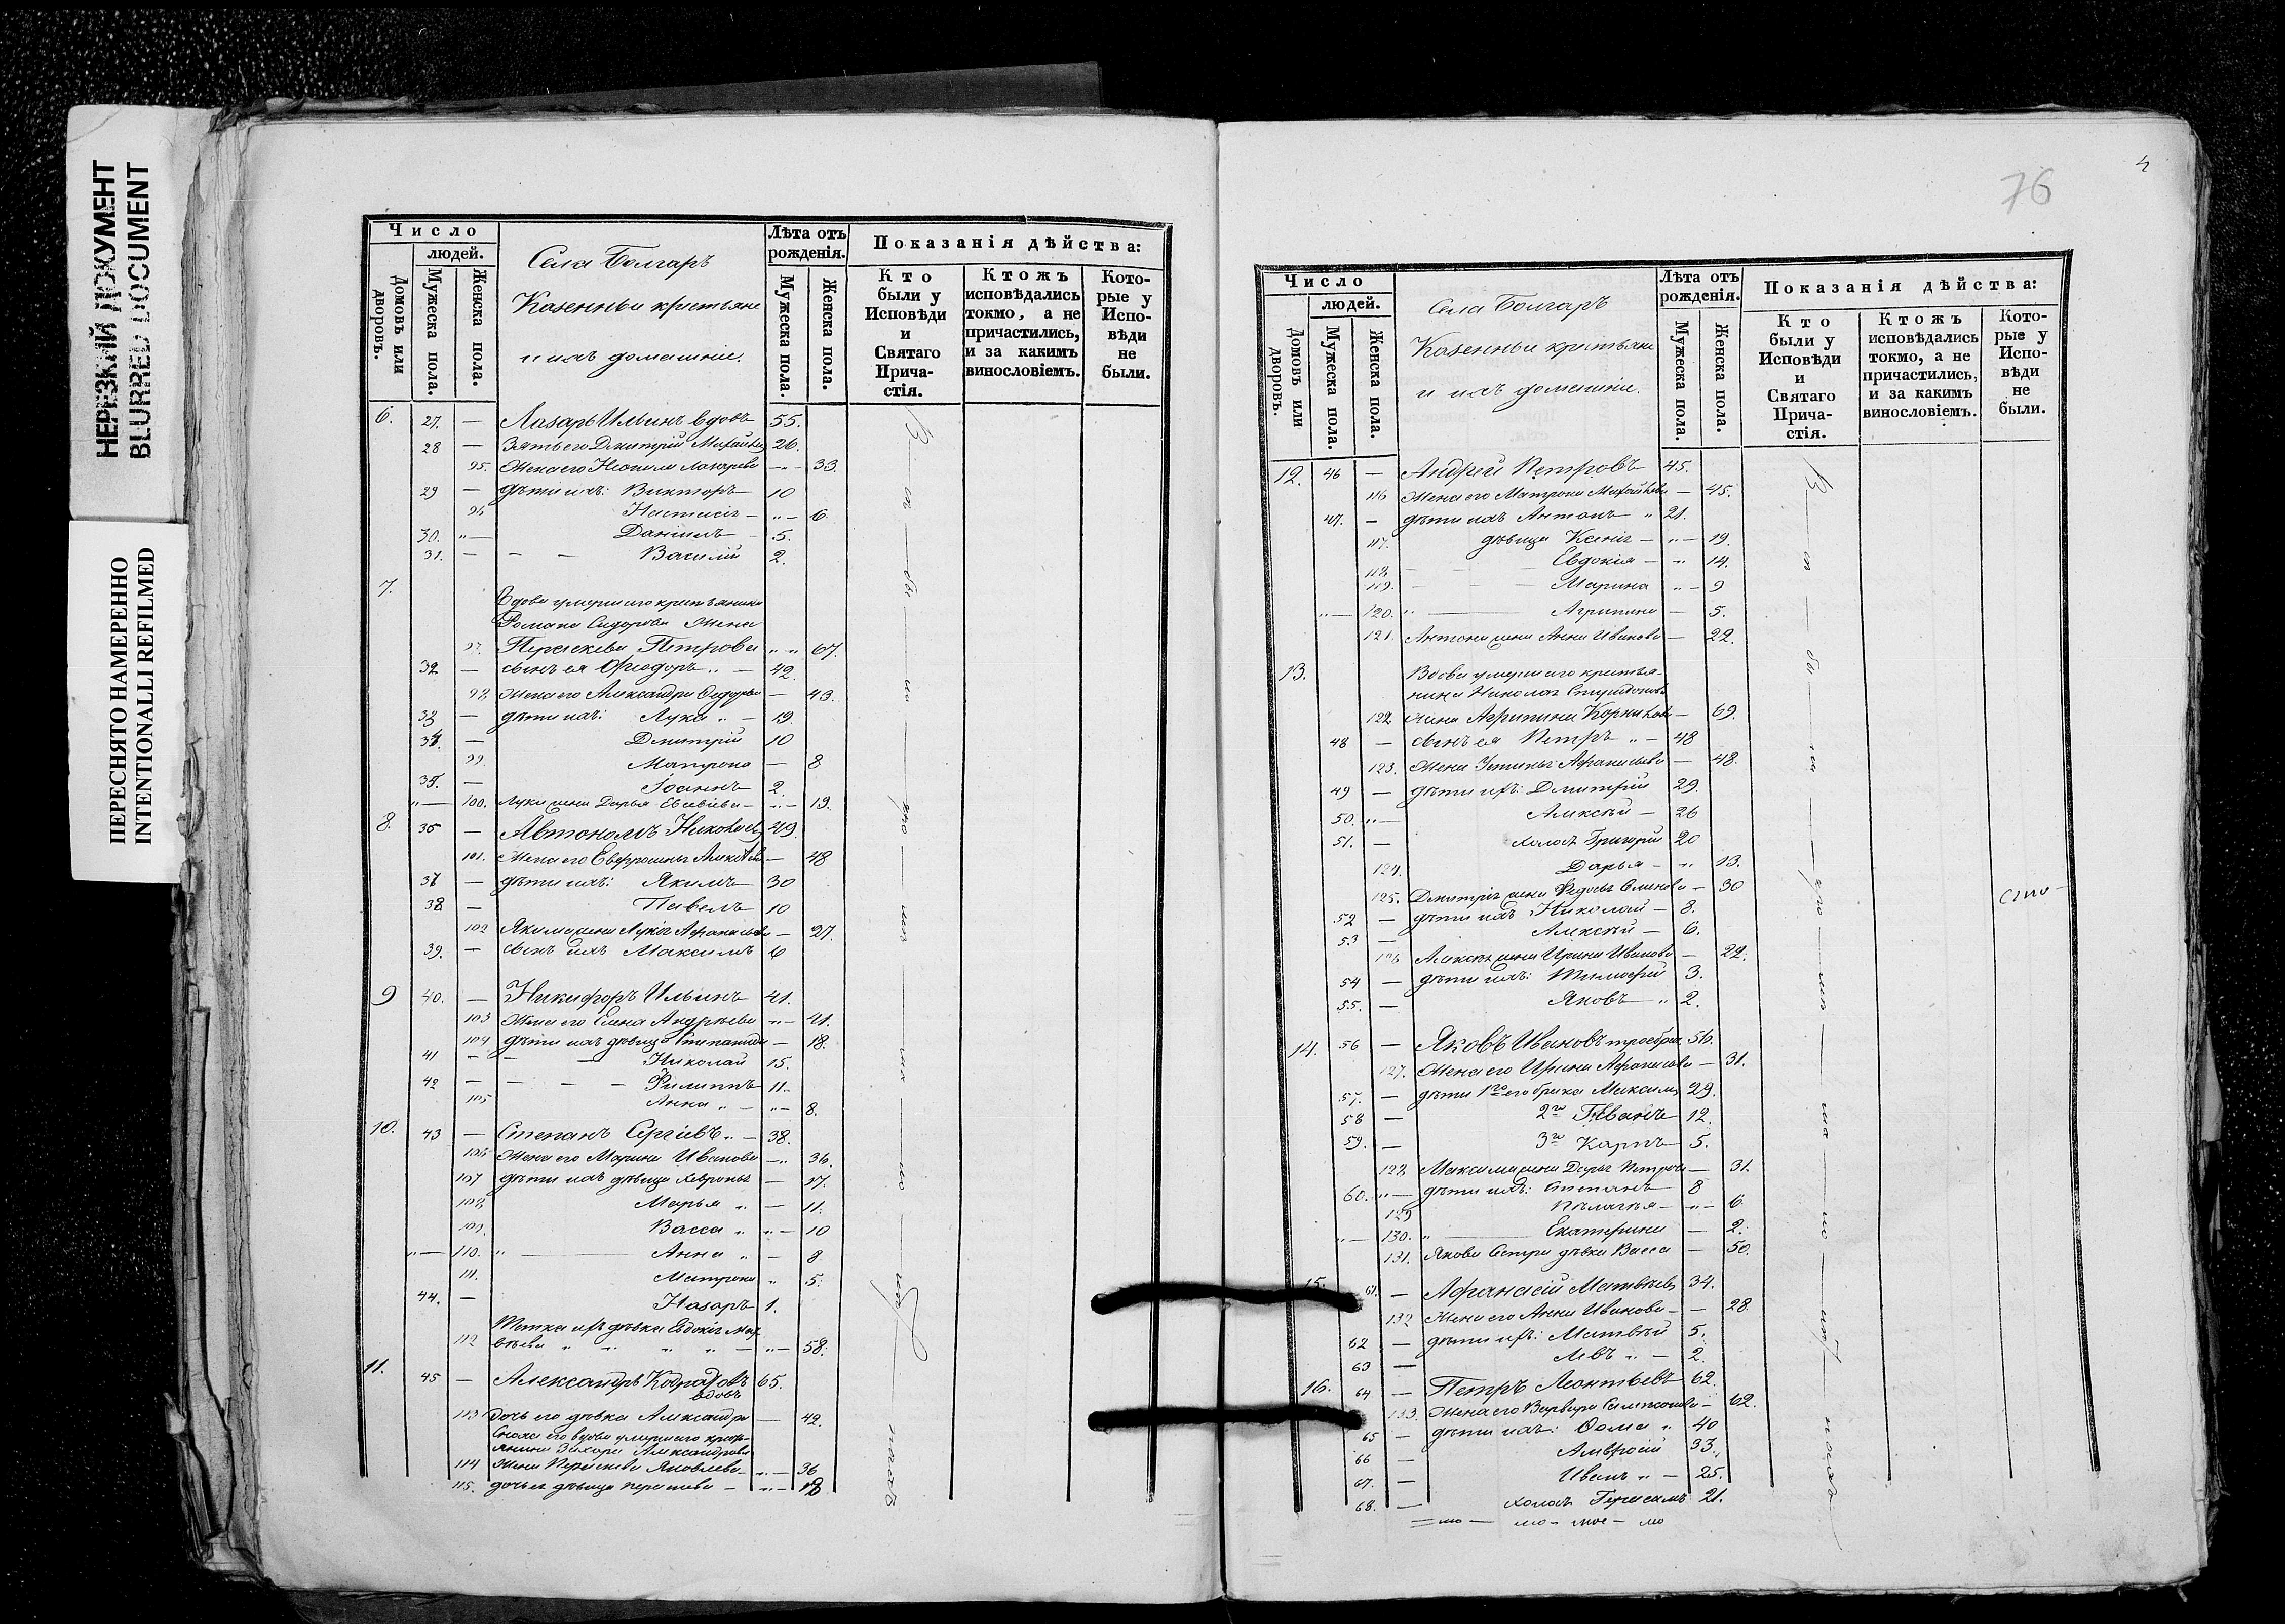 НЕРЕЗКИЙ ДОКУМЕНТ
BLURRED DOCUMENT
ПЕРЕСНЯТО НАМЕРЕННО
INTENTIONALLI REFILMED
Число
людей.
Домовъ или дворовъ.
Мужеска пола.
Женска пола.
Села Болгаръ
Казенныи крестьяне
и ихъ домашніе.
Лѣта отъ рожденія.
Мужеска пола.
Женска пола.
Показанія дѣйства:
Кто были у Исповѣди и Святаго Прича-стія.
Ктожъ исповѣдались токмо, а не причастились, и за какимъ винословіемъ.
Кото-рые у Испо-вѣди не были.
6. 27. — Лазарь Ильинъ вдовъ 55.
28 — Зять его Дмитрій Михайловъ 26.
95. Жена его Лазарева — 33.
29 — дѣти ихъ: Викторъ 10
96 Настасія — 6.
30. Даніилъ 5.
31. — Василій 2.
7. Вдова умершаго крестьянина
Романа Сидорова жена
97. Параскева Петрова 67.
32 — сынъ ея Ѳеодоръ 42.
98. Жена его Александра — 43.
33 — дѣти ихъ: Лука 19.
34. — Дмитрій 10
99 Матрона — 8
35. — Іоаннъ 2.
100. Луки жена Дарья 19.
8. 36 — Автономъ Николаевъ 49.
101. Жена его Евфросинья — 48
37 — дѣти ихъ: Якимъ 30
38 — Павелъ 10
102 Якима жена Афанасьева — 27.
39. — сынъ ихъ Максимъ 6
9 40. — Никифоръ Ильинъ 41.
103 Жена его Елена Андреева — 41.
104 дѣти ихъ дѣвица Степанида — 18.
41 — Николай 15.
42 — Филиппъ 11.
105 Анна — 8.
10. 43 — Степанъ Сергіевъ 38.
106 Жена его Марина Иванова — 36.
107 дѣти ихъ дѣвица Хавронья — 17.
108 Марья — 11.
109. Васса — 10
110. Анна — 8
111. Матрона 5.
44. — Назаръ 1.
Тетка ихъ дѣвка Евдокія Мат-
112 вѣева 58.
11. 45 — Александръ 65.
вдовъ
113 Дочь его дѣвка Александра — 42.
Сноха его вдова умершаго крест-
янина Захара Александрова
114 Жена Параскева Яковлева 36
115. дочь ея дѣвица Параскева — 18
76
4
Число
людей.
Домовъ или дворовъ.
Мужеска пола.
Женска пола.
Села Болгаръ
Казенныи крестьяне
и ихъ домашніе.
Лѣта отъ рожденія.
Мужеска пола.
Женска пола.
Показанія дѣйства:
Кто были у Исповѣди и Святаго Прича-стія.
Ктожъ исповѣдались токмо, а не причастились, и за какимъ винословіемъ.
Кото-рые у Испо-вѣди не были.
12. 46 — Андрей Петровъ 45.
116 Жена его Матрона Михайлова — 45.
47. — дѣти ихъ Антонъ 21.
117. дѣвица Ксенія — 19.
118 Евдокія — 14.
119. Марина — 9
120. Агрипина — 5.
121. Антона жена Анна Иванова — 22.
13. Вдова умершаго крестья-
нина Николая
122 жена Агрипина — 69.
48 — сынъ ея Петръ 48
123. Жена Устинья Афанасьева — 48.
49 — дѣти ихъ: Дмитрій 29.
50. Алексѣй — 26
51. — холостъ Григорій 20
124. Дарья — 13.
125. Дмитрія жена Семенова — 30
52 — дѣти ихъ Николай — 8.
53 — Алексѣй — 6.
126 Алексѣя жена Ирина Иванова — 22.
54 — дѣти ихъ: Тимофей 3.
55. — Яковъ 2.
14. 56 — Яковъ Ивановъ троебрач. 56.
127. Жена его Ирина Афанасьева — 31.
57. — дѣти 1го его брака Максимъ 29.
58 — 2го Иванъ 12.
59. — 3го Карпъ 5.
128 Максима жена Дарья Петрова — 31.
60. дѣти ихъ: Степанъ 8
129 Пелагея — 6
130. Екатерина — 2.
131. Якова Сестра дѣвка Васса — 50.
15. 61. — Афанасій Матвѣевъ 34.
132 Жена его Анна Иванова — 28.
62 — дѣти ихъ: Матвѣй 5.
63 — Левъ 2.
16. 64 — Петръ Леонтьевъ 62.
133. Жена его Варвара — 62.
65 — дѣти ихъ: Ѳома 40
66 — Амвросій 33.
67. — Иванъ — 25.
68. — холостъ Герасимъ 21.